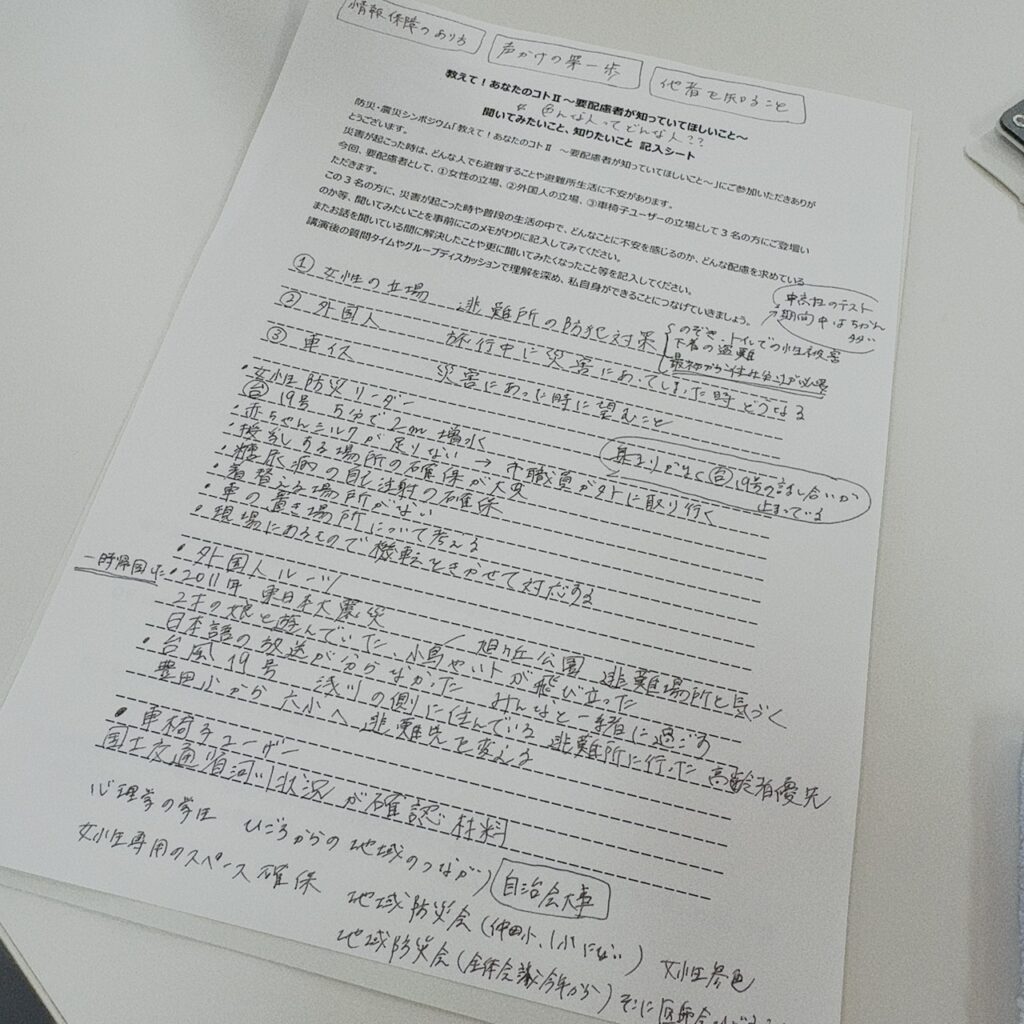 情報保障のあり方
声かけの第一歩
他者を知ること
教えて!あなたのコトⅡ～要配慮者が知っていてほしいこと～
色んな人ってどんな人??
聞いてみたいこと、知りたいこと 記入シート
防災・震災シンポジウム「教えて!あなたのコトⅡ ～要配慮者が知っていてほしいこと～」にご参加いただきありが
とうございます。
災害が起こった時は、どんな人でも避難することや避難所生活に不安があります。
今回、要配慮者として、①女性の立場、②外国人の立場、③車椅子ユーザーの立場として3名の方にご登壇い
ただきます。
この3名の方に、災害が起こった時や普段の生活の中で、どんなことに不安を感じるのか、どんな配慮を求めている
のか等、聞いてみたいことを事前にこのメモがわりに記入してみてください。
またお話を聞いている間に解決したことや更に聞いてみたくなったこと等を記入してください。
講演後の質問タイムやグループディスカッションで理解を深め、私自身ができることにつなげていきましょう。
① 女性の立場 避難所の防犯対策
のぞき・トイレでの性被害
下着の盗難
最初から仕組作りが必要
中高生のテスト
期間中はちかん
② 外国人 旅行中に災害にあってしまった時どうなる
③ 車イス 災害にあった時に望むこと
・女性防災リーダー
台19号 5分で2m増水
・赤ちゃんミルクが足りない → 市職員が外に取り行く
台19号の話し合いが
止まっている
・授乳する場所の確保が大変
・糖尿病の自己注射の確保
・着替える場所がない
・車の置き場所について考える
・現場にあるもので機転をきかせて対応する
・外国人ルーツ
一時帰国した
・2011年 東日本大震災
2才の娘と遊んでいた、小鳥やハトが飛び立った
旭が丘公園 避難場所と気づく
日本語の放送が分らなかった みんなと一緒に過ごす
・台風19号 浅川の側に住んでいる 避難所に行った 高齢者優先
豊田小から 六小へ 避難先を変える
・車椅子ユーザー
国土交通省河川状況が確認材料
心理学の学生 ひごろからの地域のつながり
自治会大事
女性専用のスペース確保 地域防災会(仲田小、一小にない)
地域防災会(全体会議今年から) 女性参画